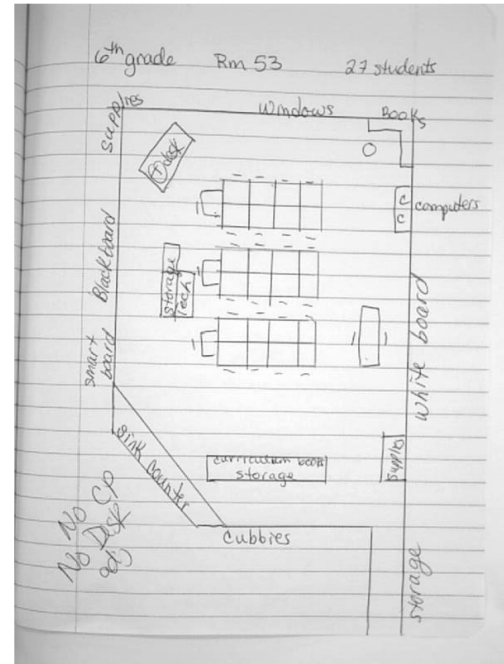 6th grade Rm 53 27 students
Supplies
Windows
Books
T desk
C
C
computers
Blackboard
Storage
Tech
Smart
board
White board
Sink counter
curriculum books
storage
Supplies
Cubbies
Storage
No Cp
No Desk
adj